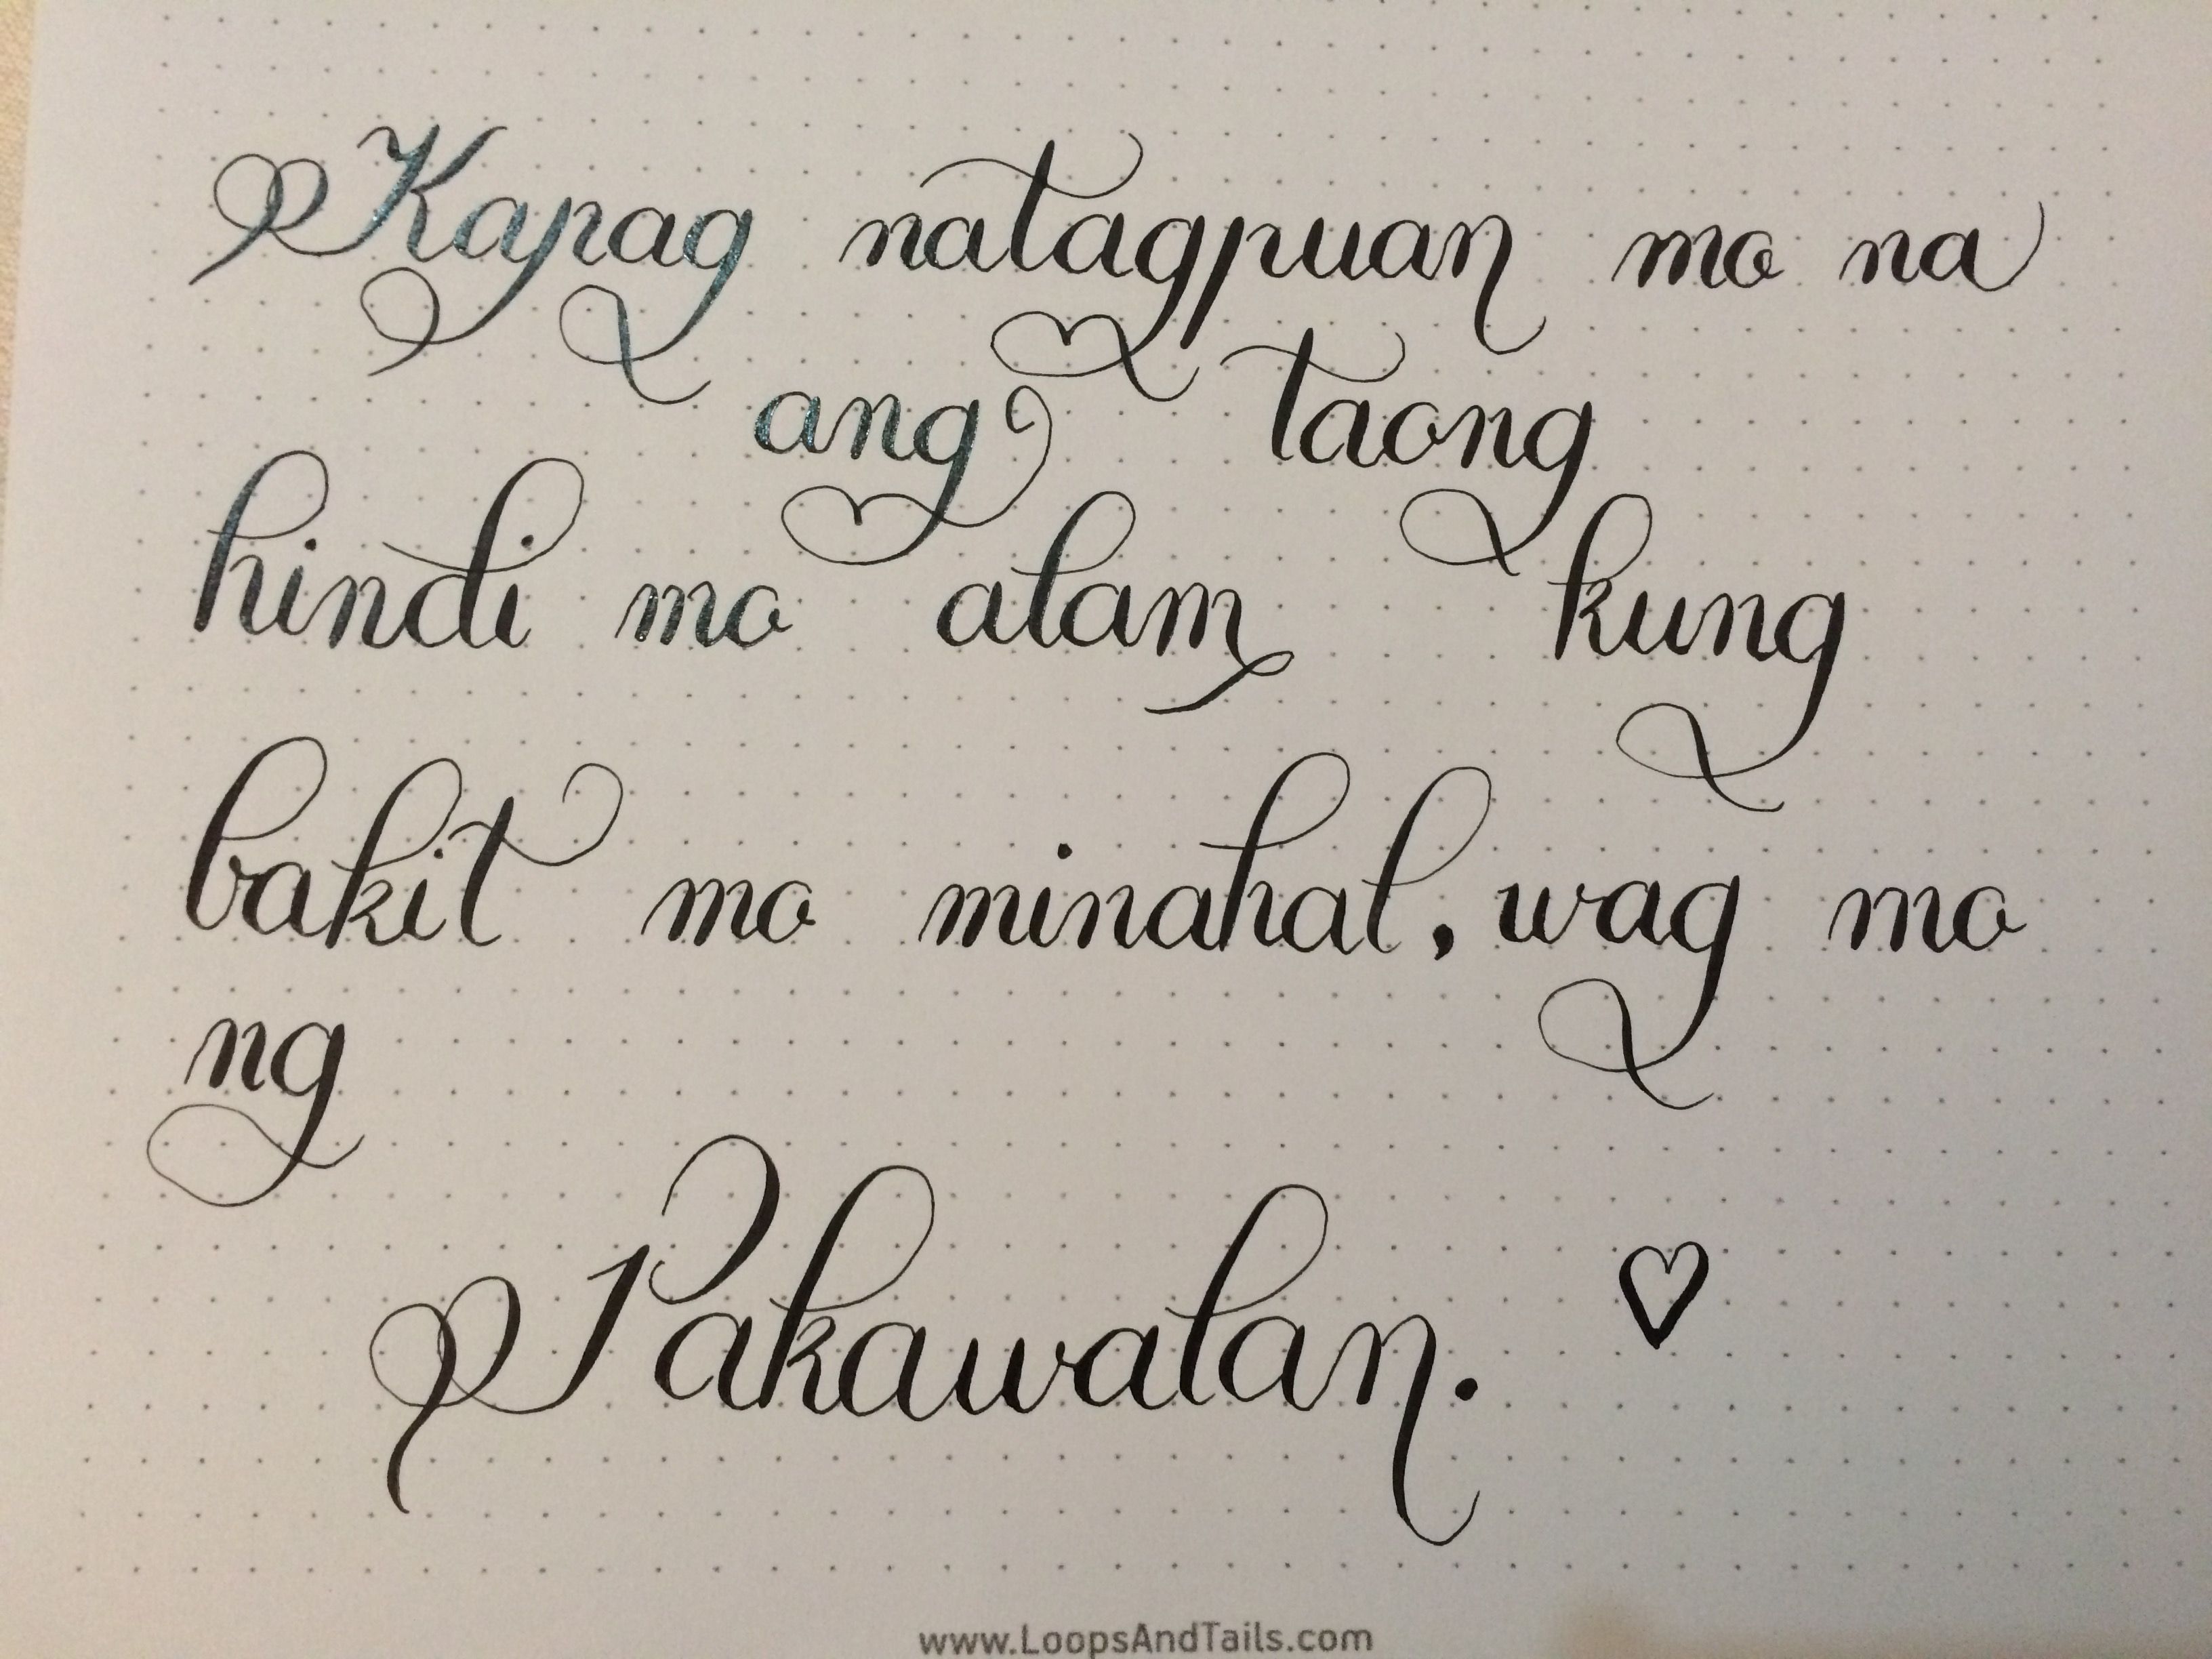 Kapag natagpuan mo na
ang taong
hindi mo alam kung
bakit mo minahal, wag mo
ng
Pakawalan. ♡
www.LoopsAndTails.com